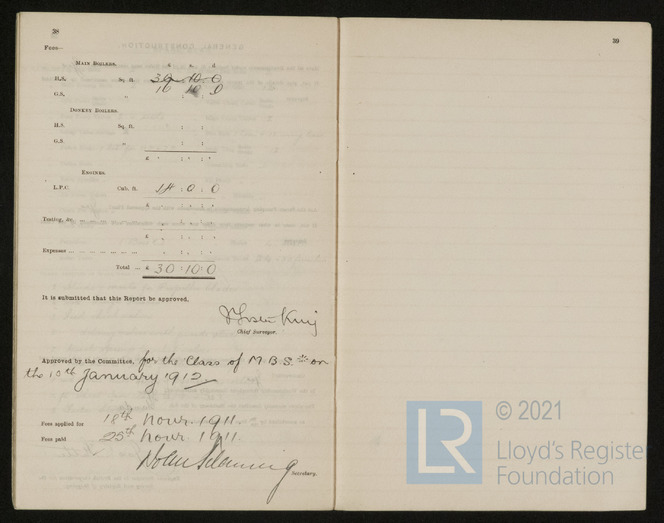 38
Fees—
MAIN BOILERS. £ s. d.
H.S. Sq. ft. 30 : 10 : 0
G.S. " 16 10 0
DONKEY BOILERS.
H.S. Sq. ft. : :
G.S. " : :
£ : :
ENGINES.
L.P.C. Cub. ft. 14 : 0 : 0
£ : :
Testing, &c. ... : :
£ : :
Expenses ... : :
Total ... £ 30 : 10 : 0
It is submitted that this Report be approved,
Chief Surveyor.
Approved by the Committee, for the Class of M.B.S.* on
the 10th January 1912
Fees applied for 18th Novr. 1911.
Fees paid 25th Novr. 1911.
Secretary.
39
© 2021
LR
Lloyd's Register
Foundation